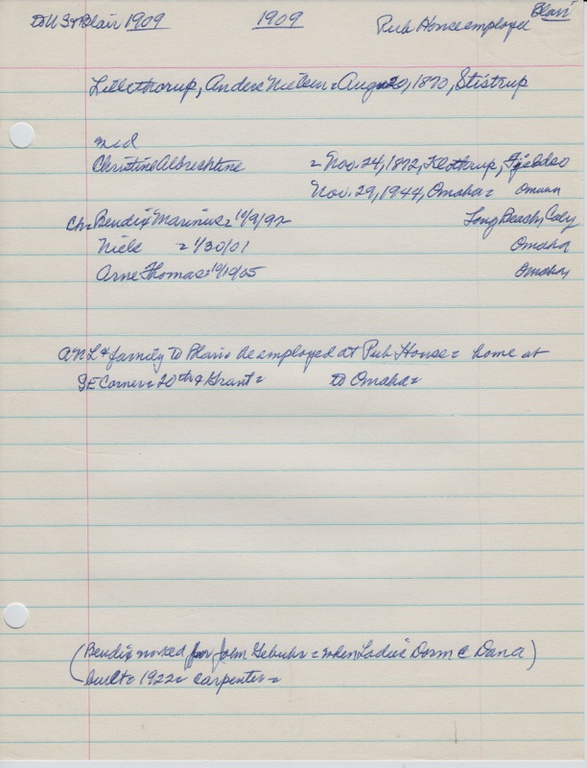 Blair
to U S & Blair 1909 1909 Pub House employe
Lillethorup, Anders Nielsen = Aug 20, 1870, Stistrup
md
Christine Albrechtine = Nov. 24, 1872, Klottrup,
Nov. 29, 1944, Omaha = Omaha
Ch = Bendix Marinus = 10/9/97 Long Beach, Caly
Niels = 1/30/01 Omaha
Arne Thomas = 10/19/05 Omaha
ANL & family to Blair = he employed at Pub House = home at
SE Corner = 20th & Grant = to Omaha =
(Bendix worked for John Gebuhr = when Ladies' Dorm @ Dana)
built = 1922 = carpenter =